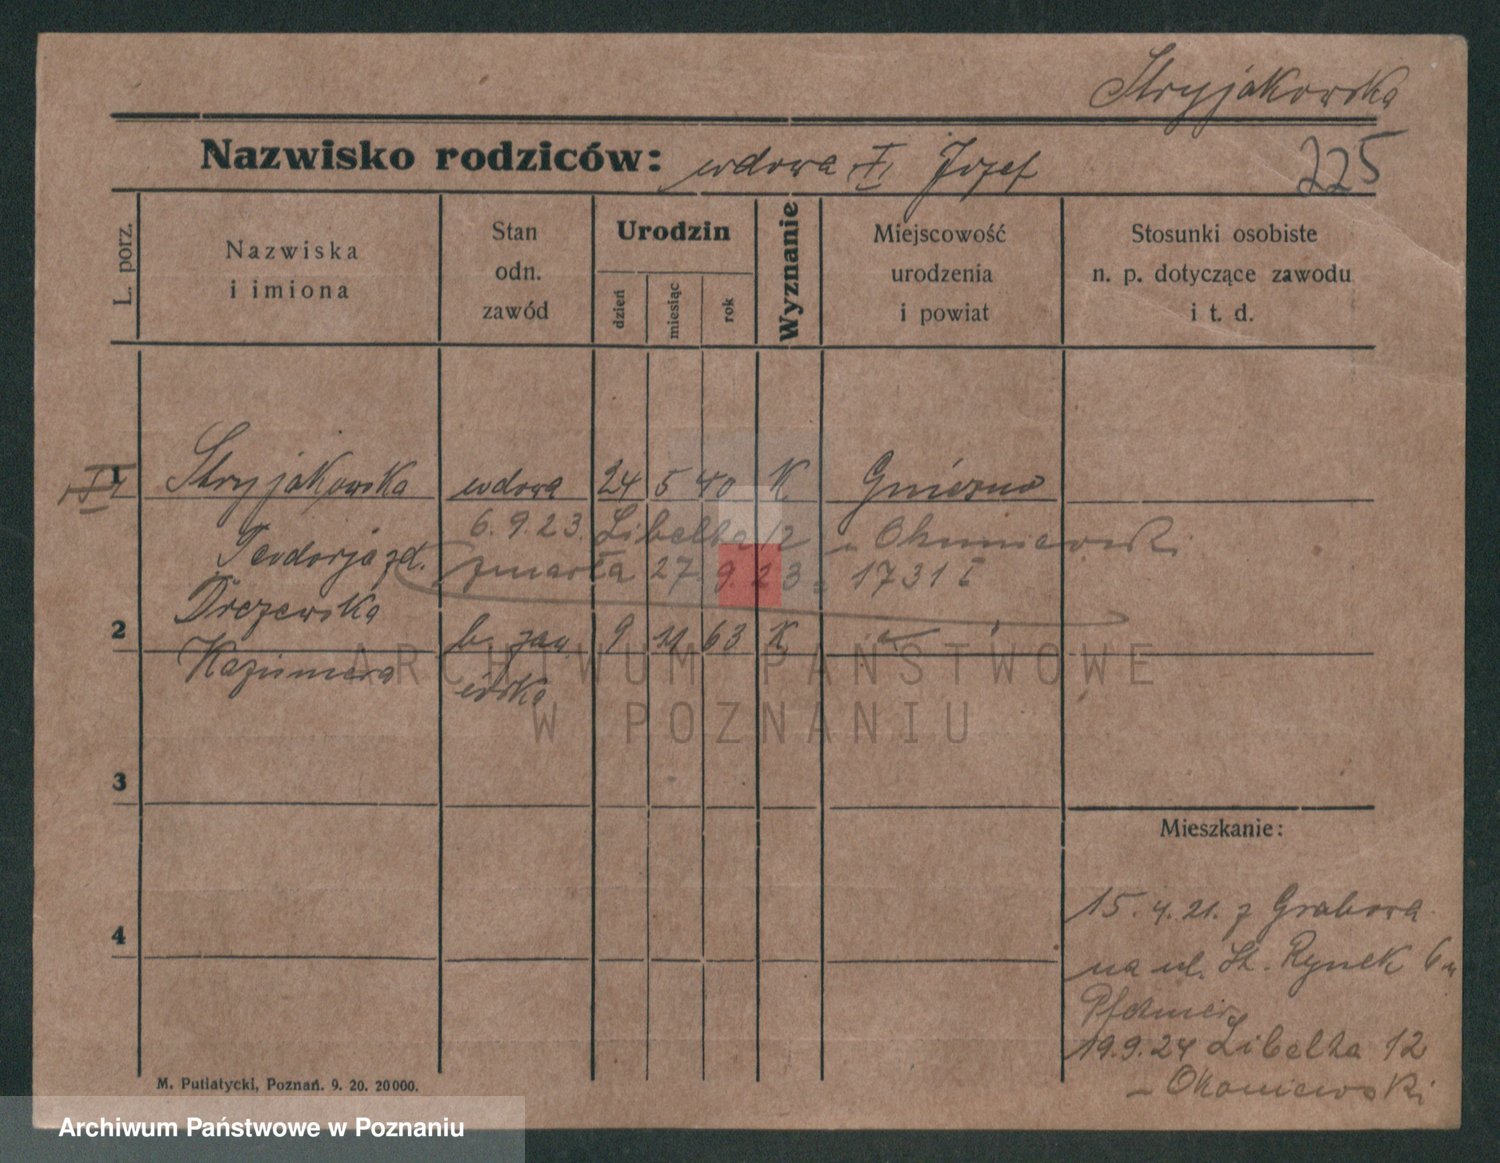 Stryjakowska
Nazwisko rodziców: wdowa I Józef 225
L. porz.
Nazwiska
i imiona
Stan
odn.
zawód
Urodzin
dzień
miesiąc
rok
Wyznanie
Miejscowość
urodzenia
i powiat
Stosunki osobiste
n. p. dotyczące zawodu
i t. d.
1 Stryjakowska wdowa 24 5 40 K Gniezno
6.9.23. Libelta 12 u Okoniewski
Teodorja zd. zmarła 27.9.23. 1731 I
Drzewska
2 b. zaw. 9 11 63 K
Kazimiera
córka
ARCHIWUM PAŃSTWOWE
W POZNANIU
3
Mieszkanie:
15.4.21. z Grabowa
4
na ul. St. Rynek 6 u
19.9.24 Libelta 12
– Okoniewski
M. Putiatycki, Poznań. 9. 20. 20000.
Archiwum Państwowe w Poznaniu